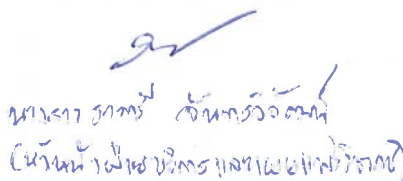 นางสาว ราตรี จันทรวิวัฒน์
(หัวหน้าฝ่ายบริการและเผยแพร่วิชาการ)